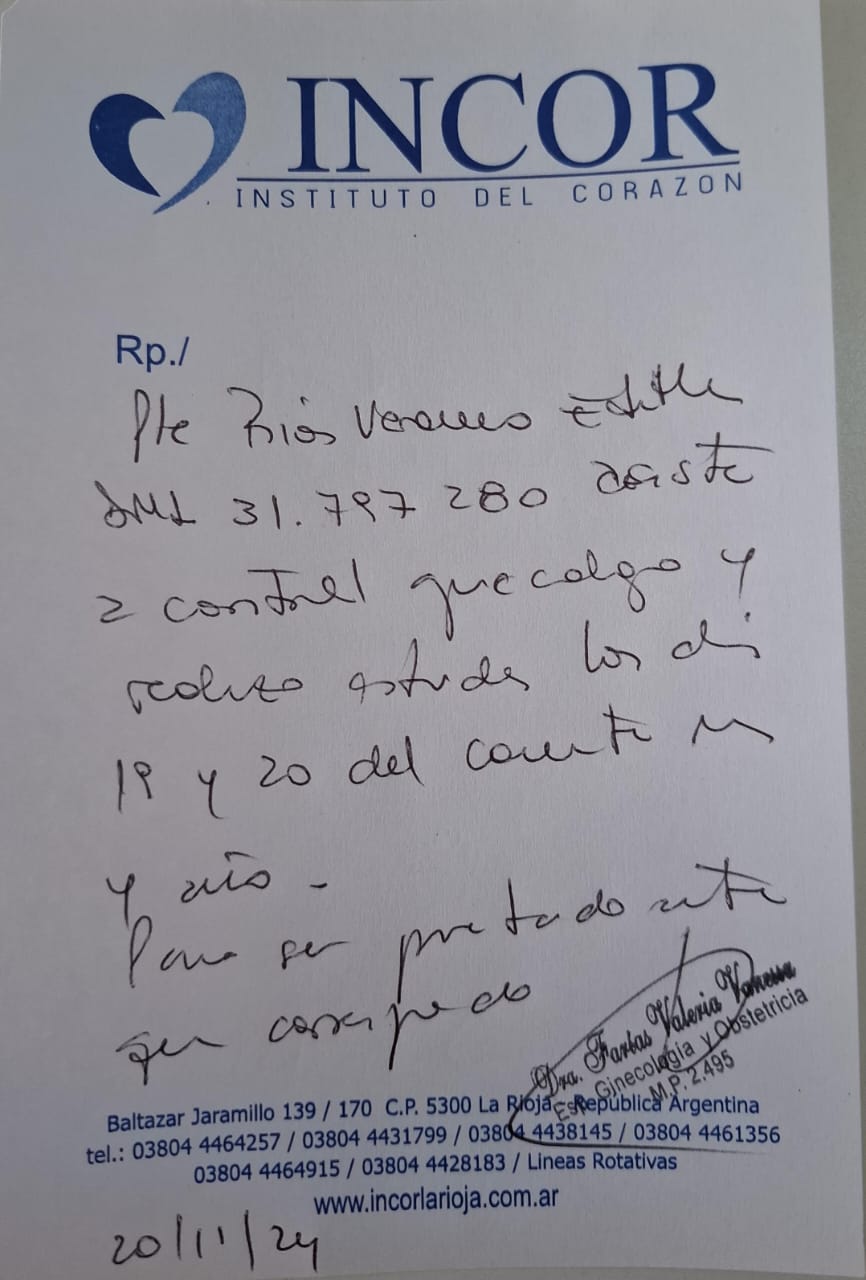 INCOR
INSTITUTO DEL CORAZON
Rp./
Pte Rios Edith
DNI 31.797 280 asiste
a control ginecologo y
realizo estudios los dis
19 y 20 del corriente
y año -
Para ser presentado ante
quien corresponda
Dra. Farías Valeria Vanessa
Esp. Ginecología y Obstetricia
M.P. 2.495
Baltazar Jaramillo 139 / 170 C.P. 5300 La Rioja - República Argentina
tel.: 03804 4464257 / 03804 4431799 / 03804 4438145 / 03804 4461356
03804 4464915 / 03804 4428183 / Lineas Rotativas
www.incorlarioja.com.ar
20/11/24